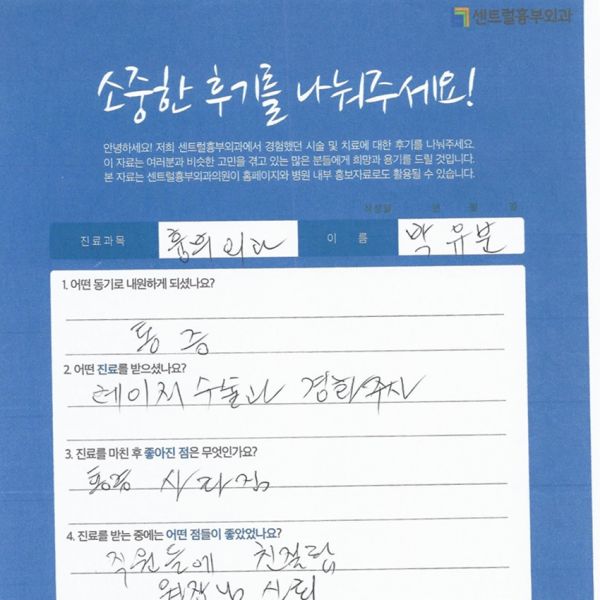 센트럴흉부외과
소중한 후기를 나눠주세요!
안녕하세요! 저희 센트럴흉부외과에서 경험했던 시술 및 치료에 대한 후기를 나눠주세요.
이 자료는 여러분과 비슷한 고민을 겪고 있는 많은 분들에게 희망과 용기를 드릴 것입니다.
본 자료는 센트럴흉부외과의원이 홈페이지와 병원 내부 홍보자료로도 활용될 수 있습니다.
작성일 년 월 일
진료과목 흉부외과 이 름 박유분
1. 어떤 동기로 내원하게 되셨나요?
통증
2. 어떤 진료를 받으셨나요?
레이저 수술과 경화주사
3. 진료를 마친 후 좋아진 점은 무엇인가요?
통증 사라짐
4. 진료를 받는 중에는 어떤 점들이 좋았었나요?
직원들에 친절함
원장님